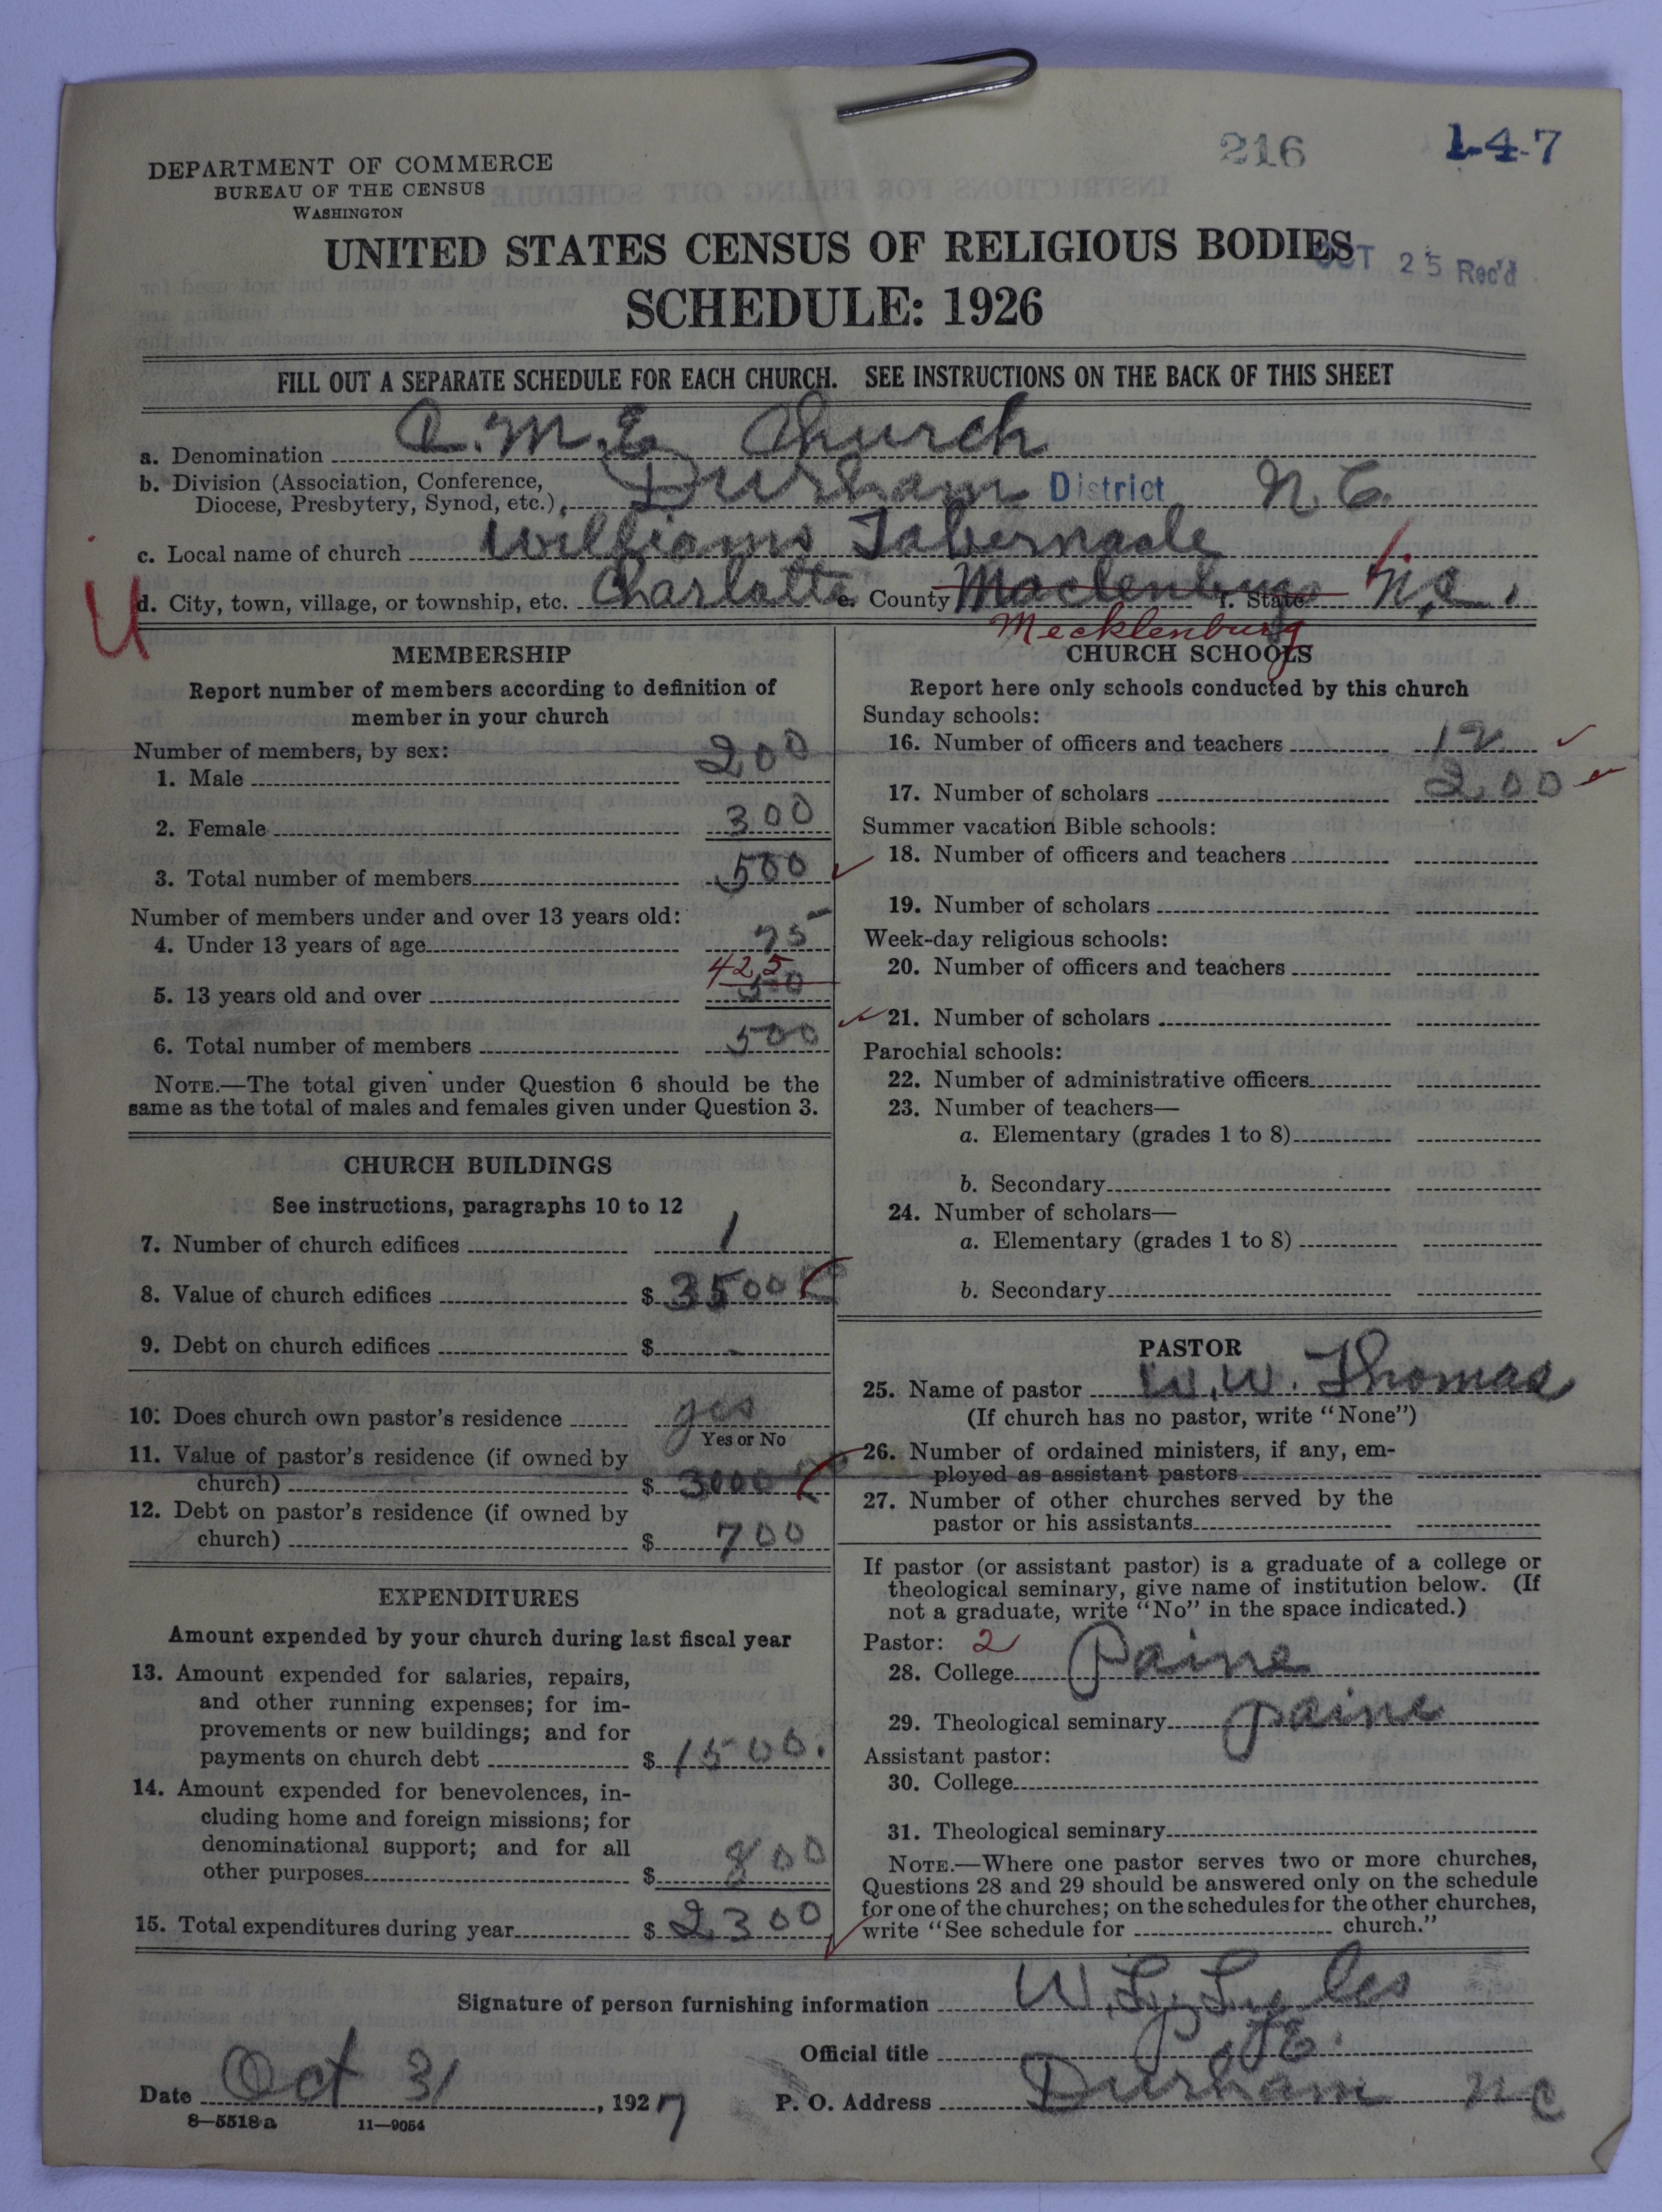 216
1-4-7
DEPARTMENT OF COMMERCE
BUREAU OF THE CENSUS
WASHINGTON
UNITED STATES CENSUS OF RELIGIOUS BODIES
OCT 25 Rec'd
SCHEDULE: 1926
FILL OUT A SEPARATE SCHEDULE FOR EACH CHURCH. SEE INSTRUCTIONS ON THE BACK OF THIS SHEET
a. Denomination C.M.E Church
b. Division (Association, Conference,
Diocese, Presbytery, Synod, etc.) Durham District N.C.
c. Local name of church Williams Tabernacle
U
d. City, town, village, or township, etc. Charlotte e. County Maclenburg f. State N.C.
Mecklenburg
MEMBERSHIP
Report number of members according to definition of
member in your church
Number of members, by sex:
1. Male 200
2. Female 300
3. Total number of members 500
Number of members under and over 13 years old:
4. Under 13 years of age 75
425
5. 13 years old and over
6. Total number of members 500
NOTE.—The total given under Question 6 should be the
same as the total of males and females given under Question 3.
CHURCH BUILDINGS
See instructions, paragraphs 10 to 12
7. Number of church edifices 1
8. Value of church edifices $ 3500
9. Debt on church edifices $ -
10. Does church own pastor's residence yes
Yes or No
11. Value of pastor's residence (if owned by
church) $ 3000
12. Debt on pastor's residence (if owned by
church) $ 700
EXPENDITURES
Amount expended by your church during last fiscal year
13. Amount expended for salaries, repairs,
and other running expenses; for im-
provements or new buildings; and for
payments on church debt $ 1500.
14. Amount expended for benevolences, in-
cluding home and foreign missions; for
denominational support; and for all
other purposes $ 800
15. Total expenditures during year $ 2300
CHURCH SCHOOLS
Report here only schools conducted by this church
Sunday schools:
16. Number of officers and teachers 12
17. Number of scholars 200
Summer vacation Bible schools:
18. Number of officers and teachers
19. Number of scholars
Week-day religious schools:
20. Number of officers and teachers
21. Number of scholars
Parochial schools:
22. Number of administrative officers
23. Number of teachers—
a. Elementary (grades 1 to 8)
b. Secondary
24. Number of scholars—
a. Elementary (grades 1 to 8)
b. Secondary
PASTOR
25. Name of pastor W.W. Thomas
(If church has no pastor, write "None")
26. Number of ordained ministers, if any, em-
ployed as assistant pastors
27. Number of other churches served by the
pastor or his assistants
If pastor (or assistant pastor) is a graduate of a college or
theological seminary, give name of institution below. (If
not a graduate, write "No" in the space indicated.)
Pastor: 2
28. College Paine
29. Theological seminary paine
Assistant pastor:
30. College
31. Theological seminary
NOTE.—Where one pastor serves two or more churches,
Questions 28 and 29 should be answered only on the schedule
for one of the churches; on the schedules for the other churches,
write "See schedule for church."
Signature of person furnishing information W.L. Lyles
Official title P.E.
Date Oct 31, 1927 P. O. Address Durham N C
8—5518a 11—9054